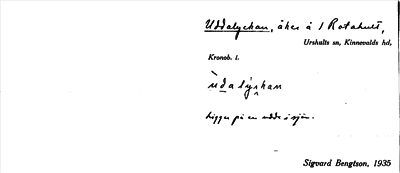 Uddalyckan, åker å 1 Rotahult,
Urshults sn, Kinnevalds hd,
Kronob. l.
ùdalýkan
ligger på en udde i sjön.
Sigvard Bengtson, 1935